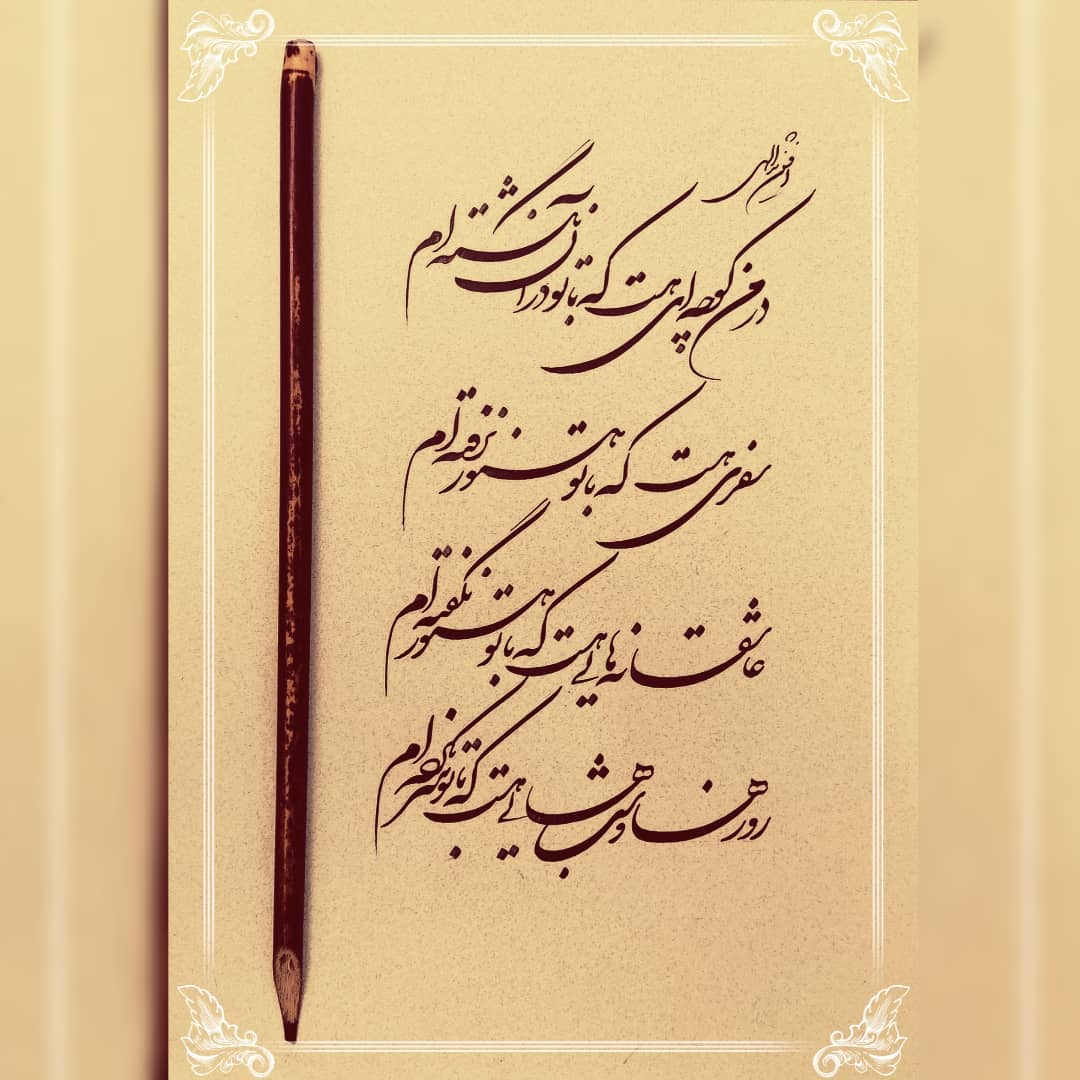 افشین یداللهی
در من کوچه ای هست که با تو در آن نگشته ام
سفری هست که با تو هنوز نرفته ام
عاشقانه هایی هست که با تو هنوز نگفته ام
روزها و شب هایی هست که با تو به سر نکرده ام